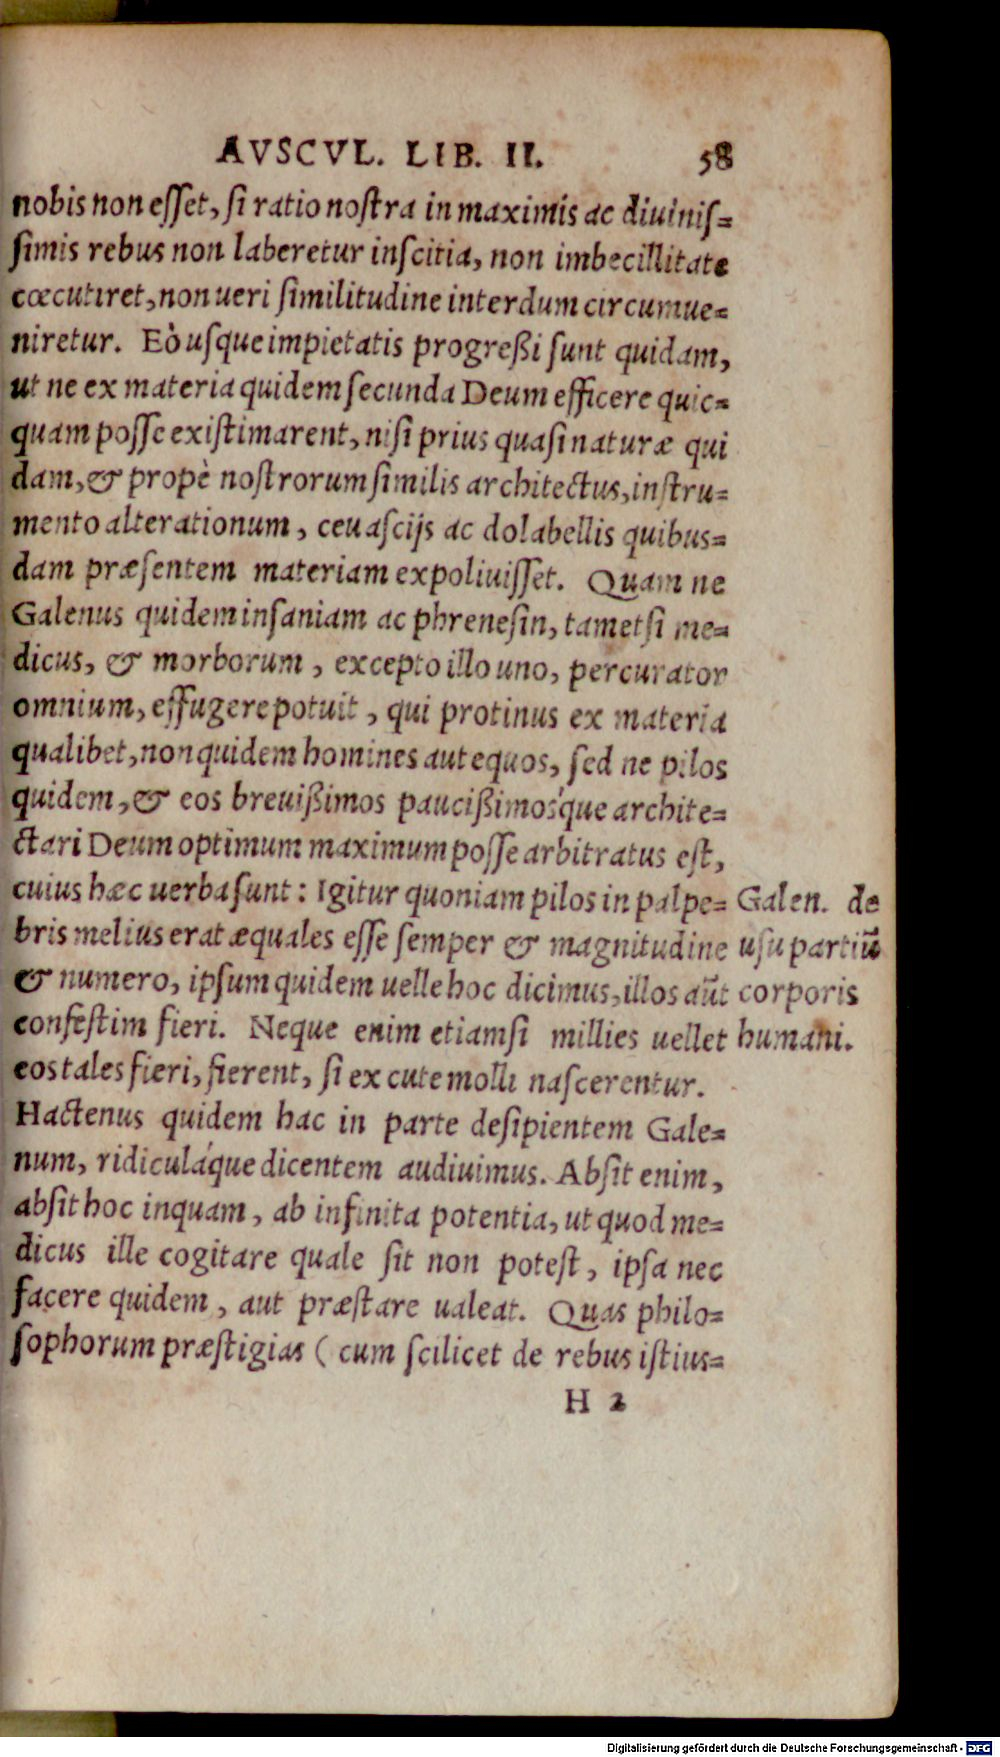 AVSCVL. LIB. II. 58
nobis non eſſet, ſi ratio noſtra in maximis ac diuiniſ=
ſimis rebus non laberetur inſcitia, non imbecillitate
cœcutiret, non ueri ſimilitudine interdum circumue=
niretur. Eò uſque impietatis progreßi ſunt quidam,
ut ne ex materia quidem ſecunda Deum efficere quic=
quam poſſe exiſtimarent, niſi prius quaſi naturæ qui
dam, & propè noſtrorum ſimilis architectus, inſtru=
mento alterationum, ceu aſcijs ac dolabellis quibus=
dam præſentem materiam expoliuiſſet. Quam ne
Galenus quidem inſaniam ac phreneſin, tametſi me=
dicus, & morborum, excepto illo uno, percurator
omnium, effugere potuit, qui protinus ex materia
qualibet, non quidem homines aut equos, ſed ne pilos
quidem, & eos breuißimos paucißimosq́ue archite=
ctari Deum optimum maximum poſſe arbitratus eſt,
cuius hæc uerba ſunt: Igitur quoniam pilos in palpe=
bris melius erat æquales eſſe ſemper & magnitudine
& numero, ipſum quidem uelle hoc dicimus, illos aūt
confeſtim fieri. Neque enim etiamſi millies uellet
eos tales fieri, fierent, ſi ex cute molli naſcerentur.
Hactenus quidem hac in parte deſipientem Gale=
num, ridiculaq́ue dicentem audiuimus. Abſit enim,
abſit hoc inquam, ab infinita potentia, ut quod me=
dicus ille cogitare quale ſit non poteſt, ipſa nec
facere quidem, aut præſtare ualeat. Quas philo=
ſophorum præſtigias (cum ſcilicet de rebus iſtius=
H 2
Galen. de
uſu partiū
corporis
humani.
Digitalisierung gefördert durch die Deutsche Forschungsgemeinschaft - DFG